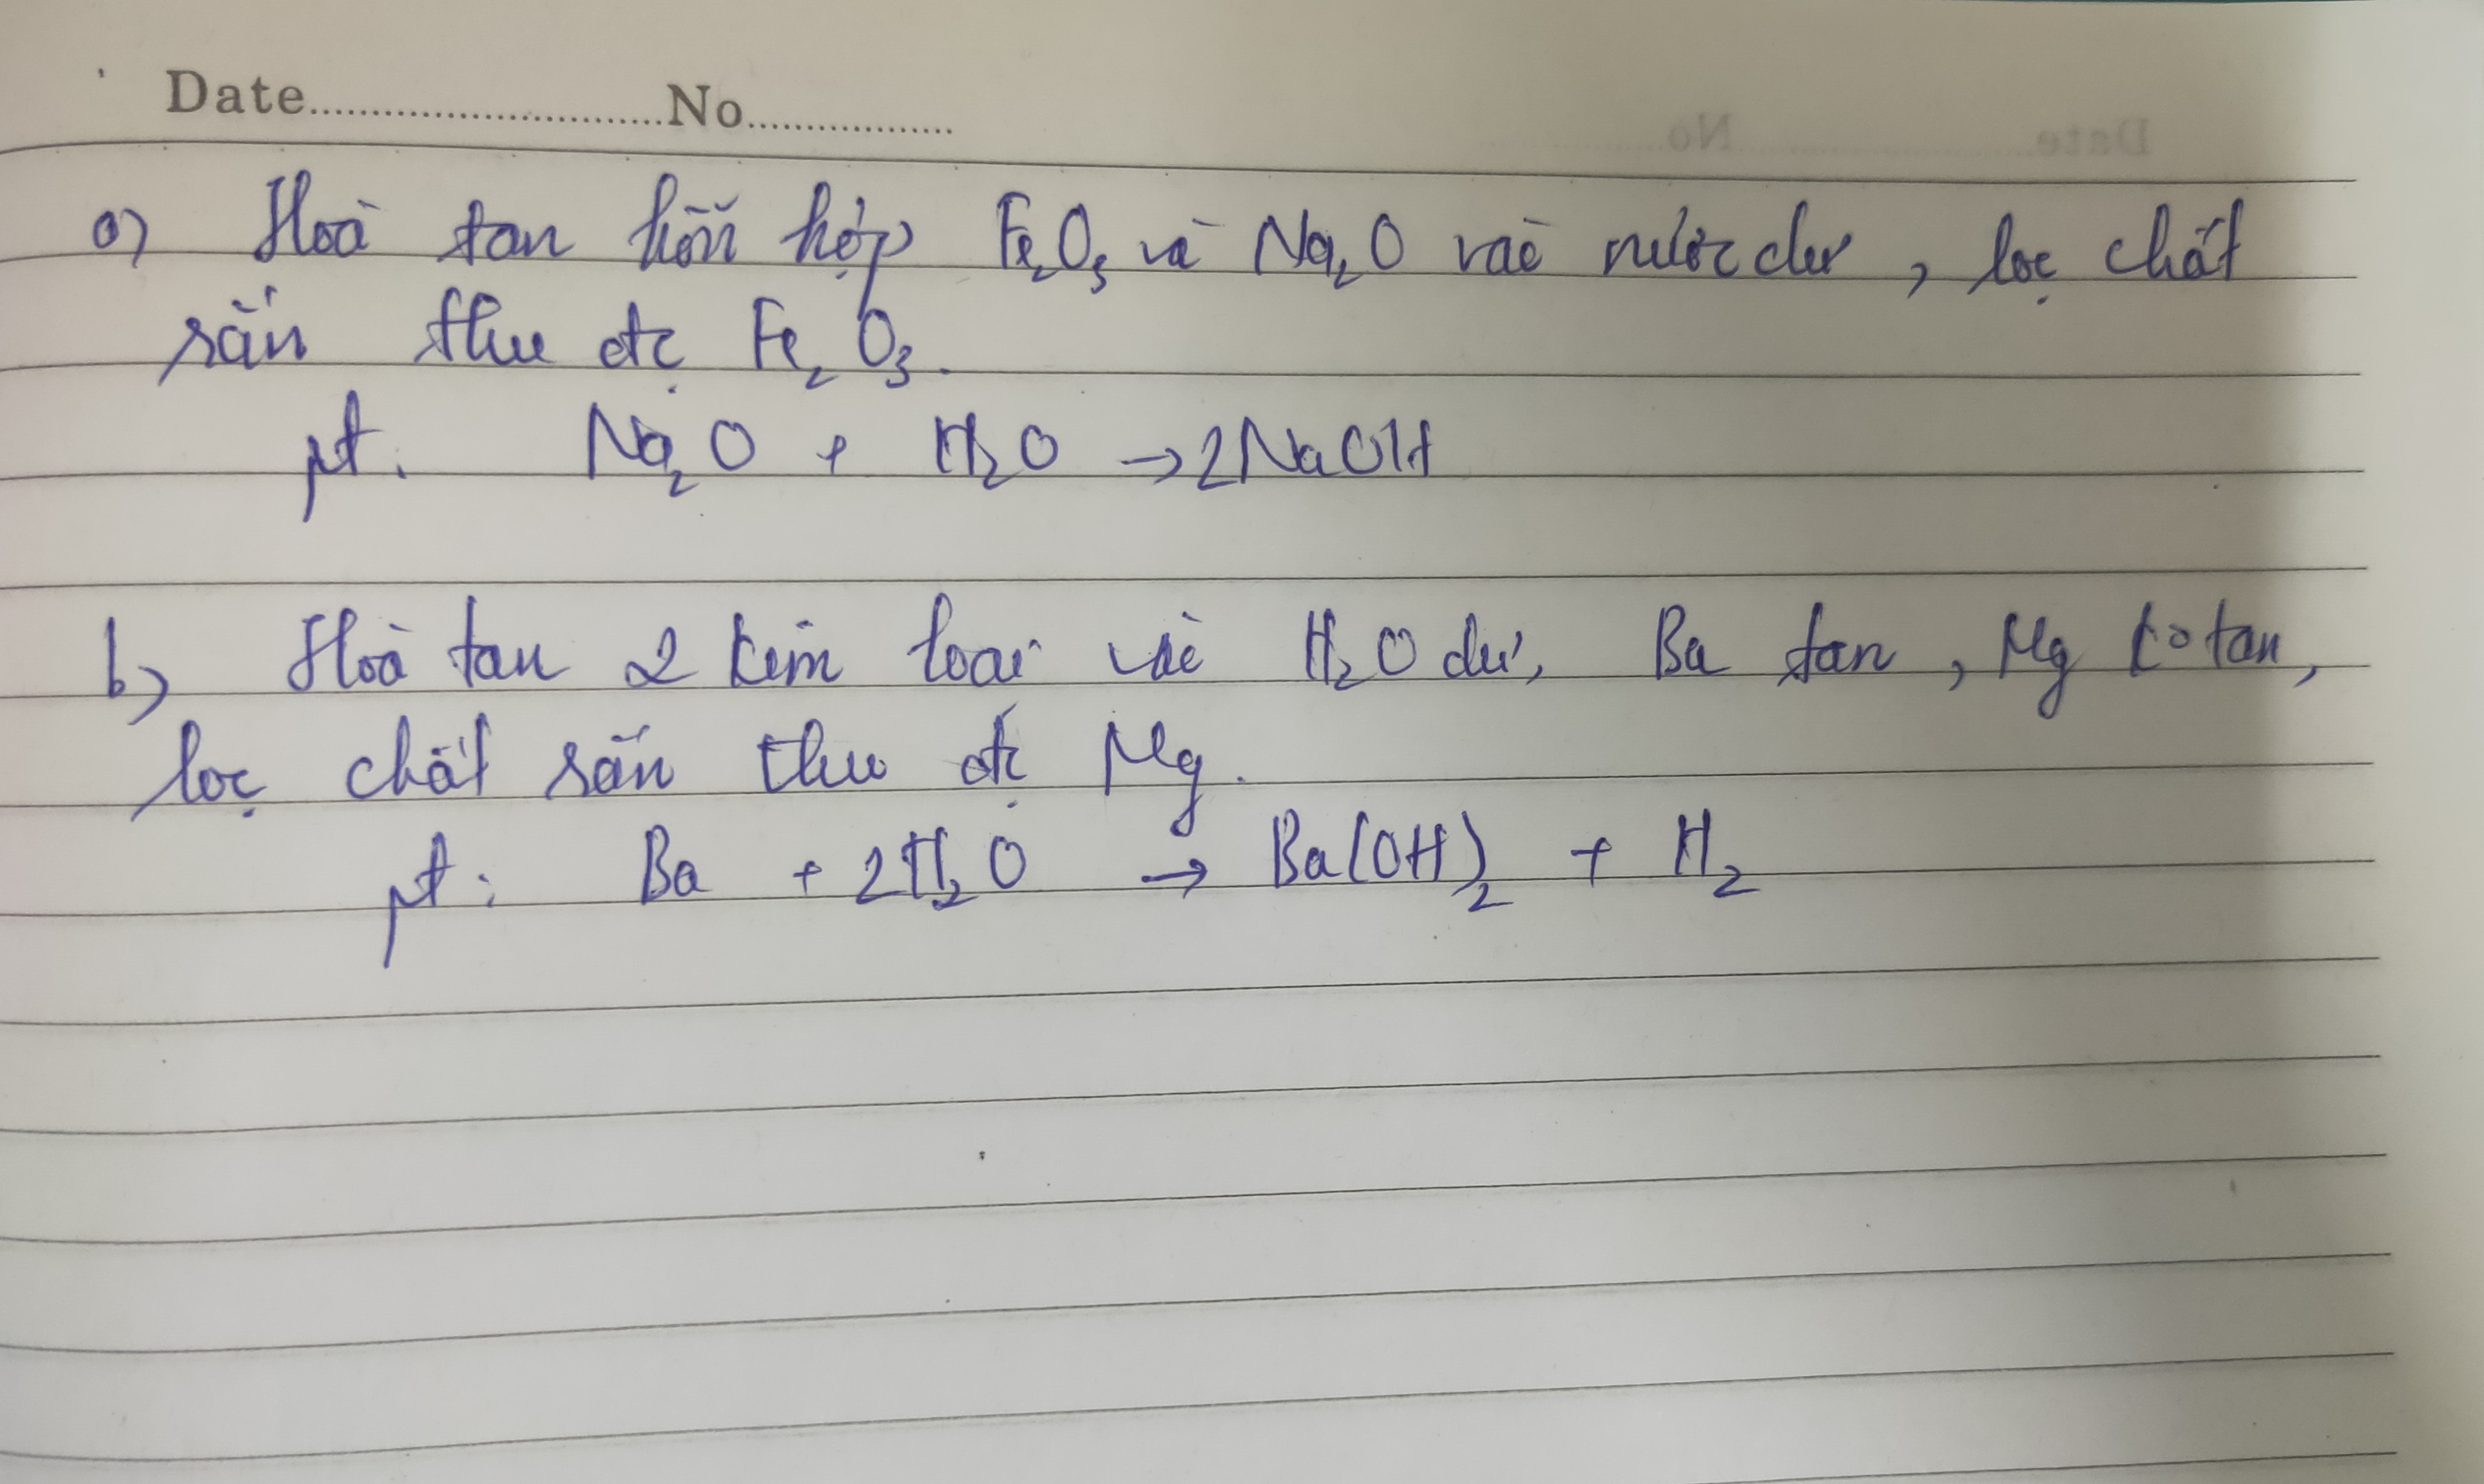 Date..............................No..................
a) Hoà tan hỗn hợp Fe₂O₃ và Na₂O vào nước dư, lọc chất
rắn thu đc Fe₂O₃.
pt. Na₂O + H₂O → 2NaOH
b) Hoà tan 2 kim loại vào H₂O dư, Ba tan, Mg k° tan,
lọc chất rắn thu đc Mg.
pt: Ba + 2H₂O → Ba(OH)₂ + H₂